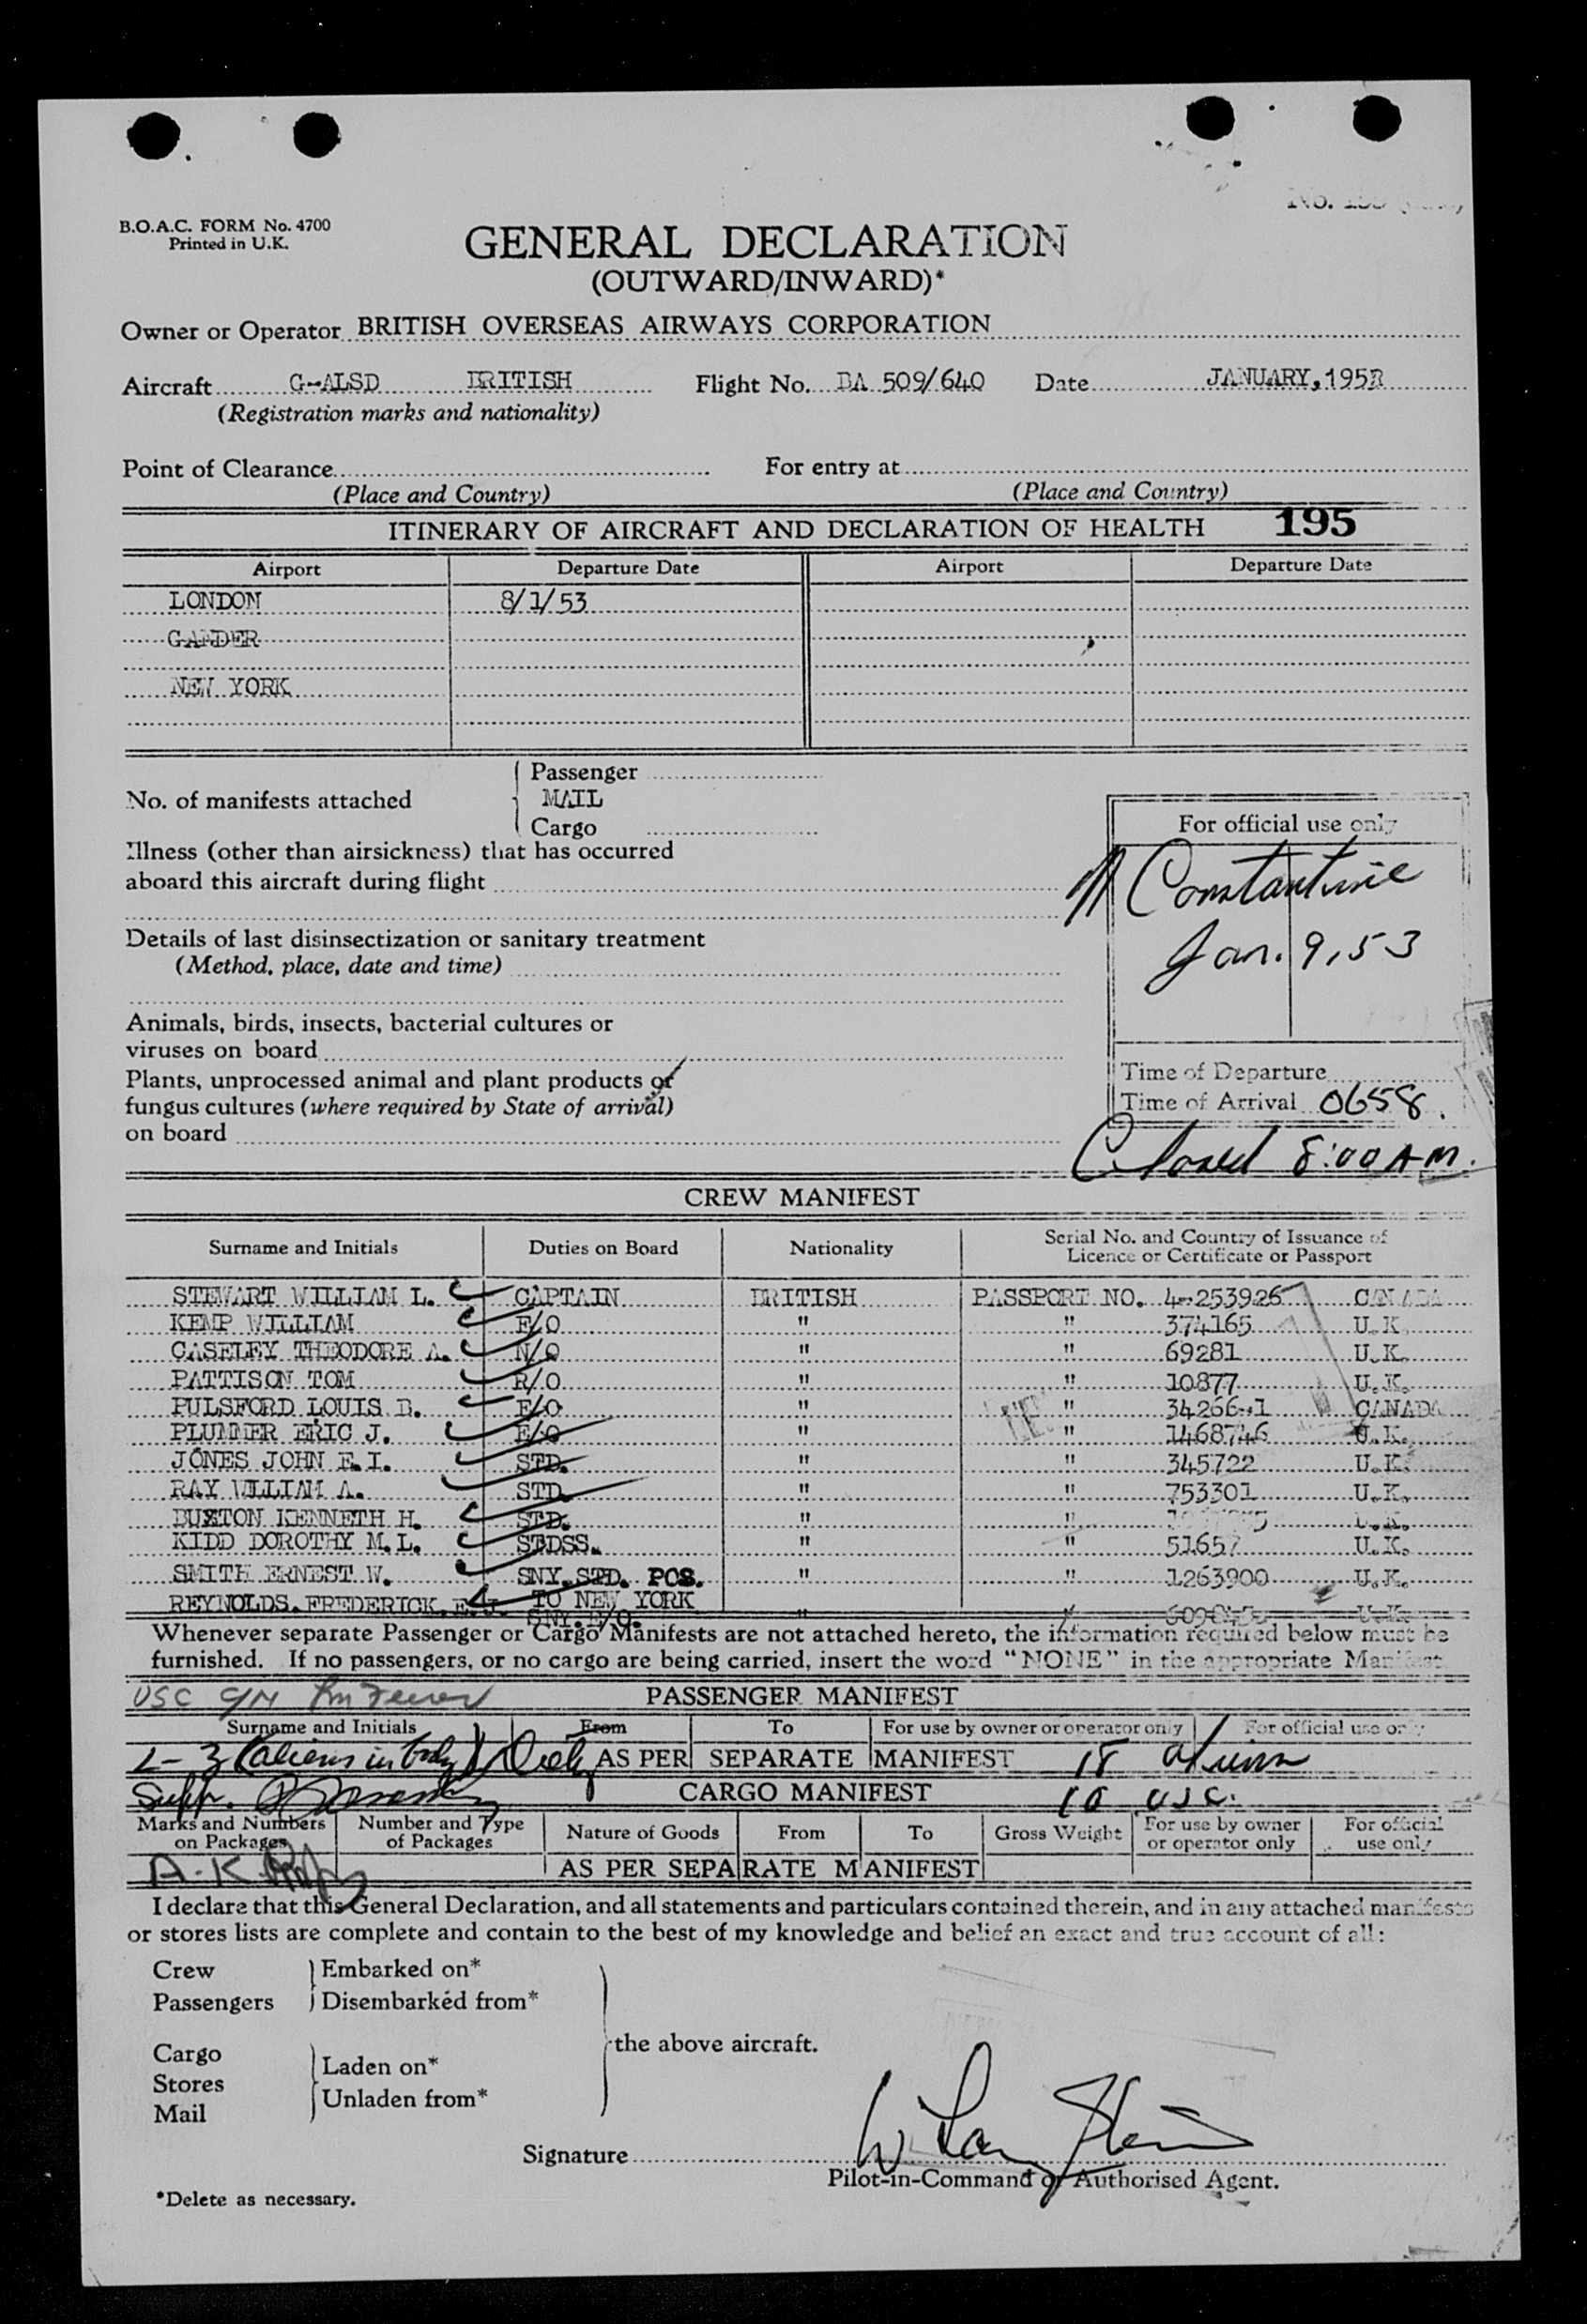 B.O.A.C. FORM No. 4700
Printed in U.K.
GENERAL DECLARATION
(OUTWARD/INWARD)*
Owner or Operator BRITISH OVERSEAS AIRWAYS CORPORATION
Aircraft G-ALSD BRITISH Flight No. BA 509/640 Date JANUARY, 1953
(Registration marks and nationality)
Point of Clearance For entry at
(Place and Country) (Place and Country)
ITINERARY OF AIRCRAFT AND DECLARATION OF HEALTH 195
Airport Departure Date Airport Departure Date
LONDON 8/1/53
GANDER
NEW YORK
No. of manifests attached
Passenger
MAIL
Cargo
Illness (other than airsickness) that has occurred
aboard this aircraft during flight
Details of last disinsectization or sanitary treatment
(Method, place, date and time)
Animals, birds, insects, bacterial cultures or
viruses on board
Plants, unprocessed animal and plant products or
fungus cultures (where required by State of arrival)
on board
For official use only
Constantine
Jan. 9, 53
Time of Departure
Time of Arrival 0658
Closed 8:00 AM.
CREW MANIFEST
Surname and Initials Duties on Board Nationality Serial No. and Country of Issuance of
Licence or Certificate or Passport
STEWART WILLIAM L. CAPTAIN BRITISH PASSPORT NO. 4-253926 CANADA
KEMP WILLIAM F/O " " 374165 U.K.
CASELEY THEODORE A. N/O " " 69281 U.K.
PATTISON TOM R/O " " 10877 U.K.
PULSFORD LOUIS B. E/O " " CANADA
PLUMMER ERIC J. E/O " " 1468746 U.K.
JONES JOHN E.I. STD. " " 345722 U.K.
RAY WILLIAM A. STD. " " 753301 U.K.
BUXTON KENNETH H. STD. " " U.K.
KIDD DOROTHY M.L. STDSS. " " 51657 U.K.
SMITH ERNEST W. SNY. STD. POS. " " 1263900 U.K.
TO NEW YORK
REYNOLDS. FREDERICK. E.J. SNY. " U.K.
Whenever separate Passenger or Cargo Manifests are not attached hereto, the information required below must be
furnished. If no passengers, or no cargo are being carried, insert the word "NONE" in the appropriate Manifest
USC
PASSENGER MANIFEST
Surname and Initials From To For use by owner or operator only For official use only
(aliens in AS PER SEPARATE MANIFEST 18
CARGO MANIFEST
10 USC.
Marks and Numbers on Packages Number and Type of Packages Nature of Goods From To Gross Weight For use by owner or operator only For official use only
A.K.
AS PER SEPARATE MANIFEST
I declare that this General Declaration, and all statements and particulars contained therein, and in any attached manifests
or stores lists are complete and contain to the best of my knowledge and belief an exact and true account of all:
Crew Embarked on*
Passengers Disembarked from*
the above aircraft.
Cargo
Stores Laden on*
Mail Unladen from*
Signature
Pilot-in-Command or Authorised Agent.
*Delete as necessary.